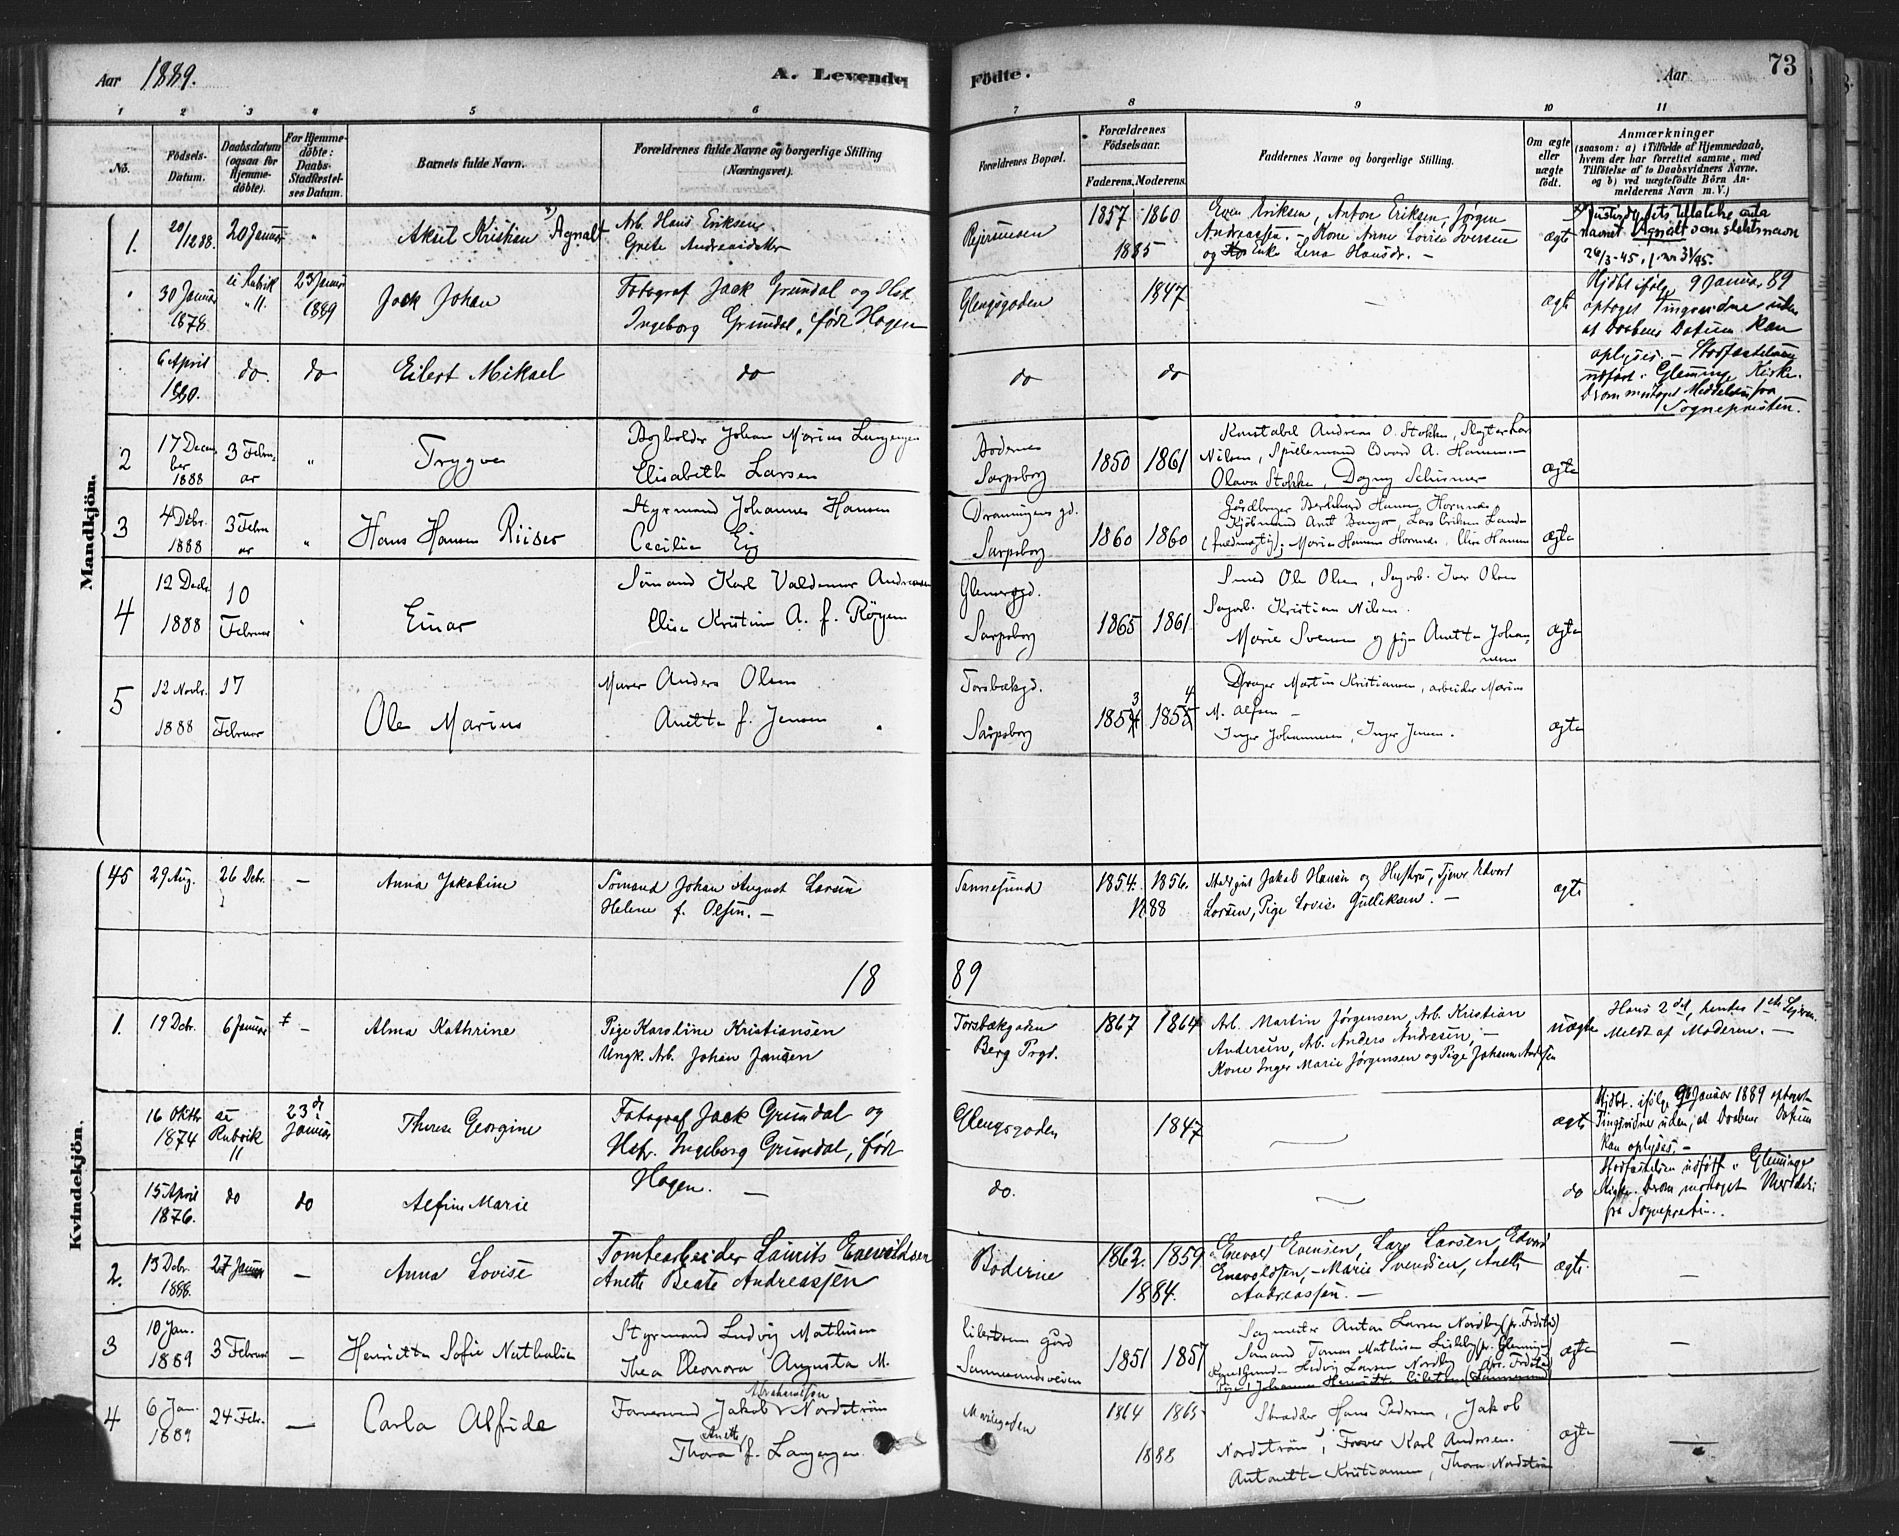 Aar 1889. A. Levende Födte. Aar 73
1 2 3 4 5 6 7 8 9 10 11
No.
Födsels-Datum.
Daabsdatum (ogsaa for Hjemme-döbte).
For Hjemme-döbte: Daabs-Stadfæstel-ses Datum.
Barnets fulde Navn.
Forældrenes fulde Navne og borgerlige Stilling (Næringsvei).
Forældrenes Bopæl.
Forældrenes Födselsaar.
Faderens. Moderens.
Faddernes Navne og borgerlige Stilling.
Om ægte eller uægte födt.
Anmærkninger (saasom: a) i Tilfælde af Hjemmedaab, hvem der har forrettet samme, med Tilföielse af to Daabsvidners Navne. og b) ved uægtefödte Börn An-melderens Navn m. V.)
Mandkjön.
1. 20/12 88. 20 Januar " Aksel Kristian Agnalt
Arb. Hans Eriksen
Grete Andreasdatter
1857 1860
1885
Even Eriksen, Anton Eriksen, Jørgen
Andreassen. - Kone Anne Lovise Iversen
og Enke Lena Hansdr. -
ægte
navnet Agnalt som slektsnavn
30 Januar 1878 se Rubrik 11. 23 Januar 1889
Jack Johan
Fotograf Jack Grundal og Hst.
Ingeborg Grundal, født Hagen
Glengsgaden 1847 — ægte
Hjdbt ifølge 9 Januar 89
optaget Tingsvidne uden
at Daabens Datum kan
oplyses. - Stadfæstelsen
udført i Glemminge Kirke.
Derom modtaget Meddelelse fra
Sognepresten.
6 April 1880. do do Eilert Mikael do do do
2 17 December 1888 3 Februar " Trygve
Bogholder Johan Marius Langengen
Elisabeth Larsen
Boderne Sarpsborg 1850 1861
Konstabel Andreas O. Stokke, Slagter
Nilsen, Spillemand Edvard A. Hansen.
Olava Stokke, Dagny
ægte
3 4 Debr. 1888 3 Februar " Hans Hansen Riiser
Styrmand Johannes Hansen
Cecilie Eig
Sarpsborg 1860 1860
ægte
4 12 Decbr. 1888 10 Februar " Einar
Sømand Karl Valdemar Andreassen
Elise Kristine A. f. Røyen
Sarpsborg 1865 1861
Smed Ole Olsen, Sagarb. Iver Olsen
Sagarb. Kristian Nilsen.
Marie Svensen og pige Anette Johannesen
ægte
5 12 Novbr. 1888 17 Februar Ole Marius
Murer Anders Olsen
Anette f. Jensen
Torsbækgd. Sarpsborg 1853 1854
Martin Kristiansen, arbeider Marius
M. Alfsen -
Inger Johannesen, Inger Jensen.
ægte
Kvindekjön.
45 29 Aug. 26 Debr. — Anna Jakobine
Sømand Johan August Larsen
Helene f. Olsen. —
Sannesund 1854. 1856.
1888
Jakob Hansen og Hustru, Tjener Edvard
Larsen, Pige Lovise Gulliksen. —
ægte
18 89
1. 19 Debr. 6 Januar — Alma Kathrine
Pige Karoline Kristiansen
Ungk. Arb. Johan Jansen
Torsbækgaden
Berg Prgd.
1867 1864
Arb. Martin Jørgensen, Arb. Kristian
Andersen, Arb. Anders Andresen,
Kone Inger Marie Jørgensen og Pige Johanne Andersen
uægte
Hans 2det, hendes 1ste Leierm.
Meldt af Moderen. —
16 Oktbr 1874 se Rubrik 11 23de Januar Therese Georgine
Fotograf Jack Grundal og
Hstr. Ingeborg Grundal, født
Hagen. —
Glengsgaden 1847 — ægte
Hjdbt. ifølge 9de Januar 1889 optaget
Tingsvidne uden, at Daabens Datum
kan oplyses. -
Stadfæstelsen udført i Glemminge
Kirke. Derom modtaget Meddel.
fra Sognepresten.
15 April 1876. do do Alfine Marie do. — do
2. 13 Debr. 1888. 27 Januar — Anna Lovise
Tomtearbeider Laurits Enevoldsen
Anette Beate Andreassen
Boderne 1862. 1859
1884.
Enevold Evensen, Lars Larsen, Edvard
Enevoldsen, - Marie Svendsen, Anette
Andreassen. —
ægte —
3 10 Jan. 1889 3 Februar — Henriette Sofie Nathalie
Styrmand Ludvig Mathisen
Thea Eleonora Augusta M.
Sannesundsveien 1851 1857
Sagmester Anton Larsen Nordby
ægte —
4 6 Jan. 1889 24 Febr. — Carla Alfride
Abrahamsson
Farversvend Jakob Nordstrøm
Anette
Thora f. Langengen
Mariegaden 1864 1865
1888
Skrædder Hans Pedersen, Jakob
Nordstrøm, Farver Karl Andersen.
Antonette Kristiansen, Thora Nordstrøm
ægte —